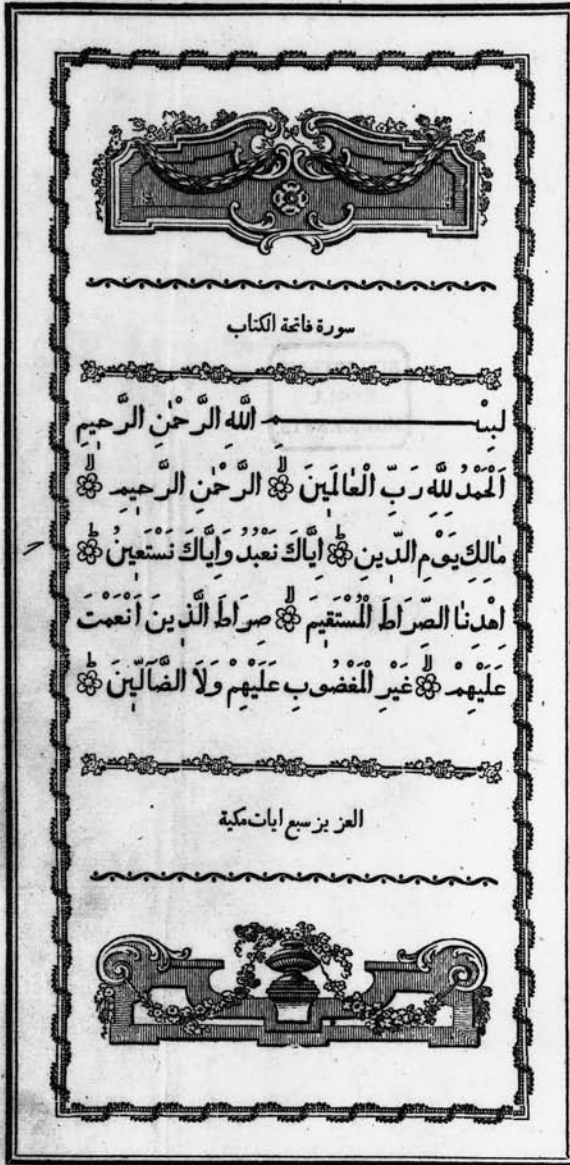 سورة فاتحة الكتاب
بِسْــــــمِ اللّٰهِ الرَّحْمٰنِ الرَّحِيمِ
اَلْحَمْدُ لِلّٰهِ رَبِّ الْعٰالَمِينَ ۝ الرَّحْمٰنِ الرَّحِيمِ ۝
مٰالِكِ يَوْمِ الدِّينِ ۝ اِيَّاكَ نَعْبُدُ وَاِيَّاكَ نَسْتَعِينُ ۝
اِهْدِنٰا الصِّرٰاطَ الْمُسْتَقِيمَ ۝ صِرٰاطَ الَّذِينَ اَنْعَمْتَ
عَلَيْهِمْ ۝ غَيْرِ الْمَغْضُوبِ عَلَيْهِمْ وَلَا الضَّآلِّينَ ۝
العزيز سبع ايات مكية